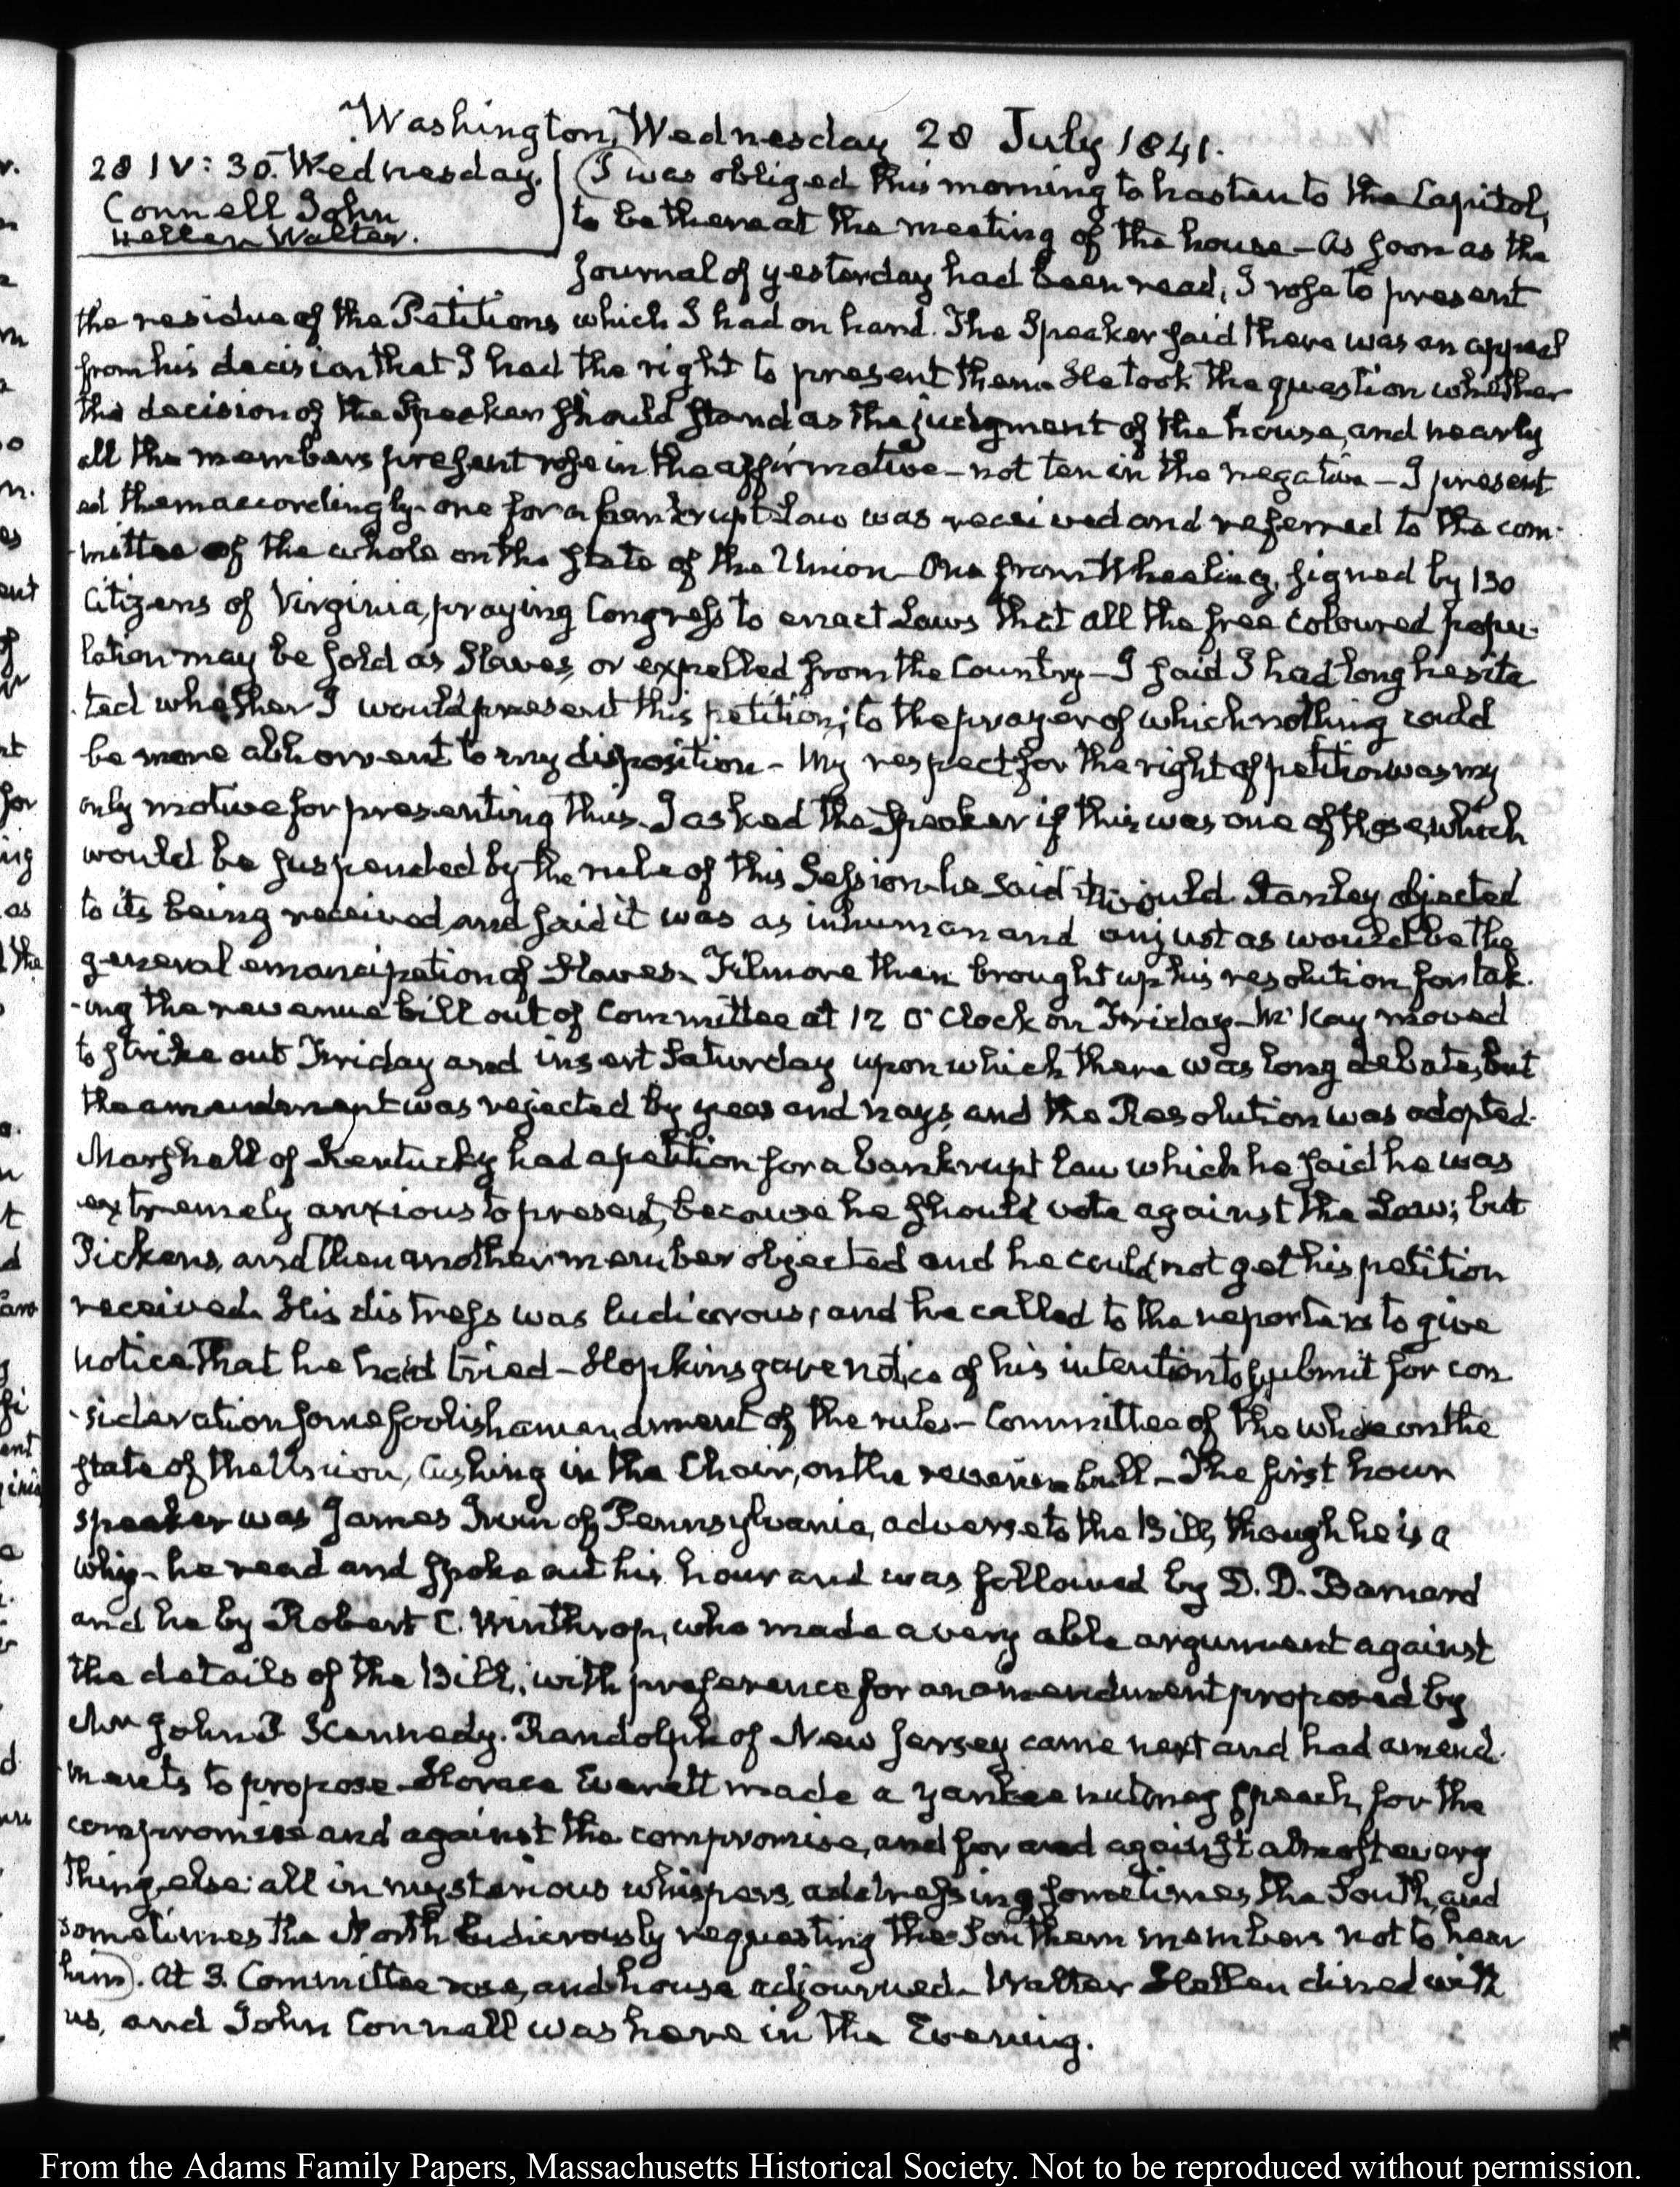 Washington, Wednesday 28 July 1841.
28 IV: 30. Wednesday.
Connell John
Hellen Walter.
I was obliged this morning to hasten to the Capitol,
to be there at the meeting of the house — As soon as the
journal of yesterday had been read, I rose to present
the residue of the Petitions which I had on hand. The Speaker said there was an appeal
from his decision that I had the right to present them. He took the question whether
the decision of the Speaker should stand as the judgment of the house, and nearly
all the members present rose in the affirmative — not ten in the negative — I present-
ed them accordingly — one for a bankrupt Law was received and referred to the com-
mittee of the whole on the state of the Union — One from Wheeling, signed by 130
Citizens of Virginia, praying Congress to enact Laws that all the free coloured popu-
lation may be sold as Slaves, or expelled from the Country — I said I had long hesita-
ted whether I would present this petition; to the prayer of which nothing could
be more abhorrent to my disposition — My respect for the right of petition was my
only motive for presenting this. I asked the Speaker if this was one of those, which
would be suspended by the rule of this Session — he said it would. Stanley objected
to its being received, and said it was as inhuman and unjust as would be the
general emancipation of Slaves. Filmore then brought up his resolution for tak-
ing the revenue bill out of Committee at 12 O'Clock on Friday — McKay moved
to strike out Friday and insert Saturday upon which there was long debate, but
the amendment was rejected by yeas and nays, and the Resolution was adopted.
Marshall of Kentucky had a petition for a bankrupt law which he said he was
extremely anxious to present, because he should vote against the Law; but
Pickens, and then another member objected and he could not get his petition
received. His distress was ludicrous, and he called to the reporters to give
notice that he had tried — Hopkins gave notice of his intention to submit for con-
sideration some foolish amendment of the rules — Committee of the whole on the
state of the Union, Cushing in the Chair, on the revenue bill — The first hour
speaker was James Irvin of Pennsylvania, adverse to the Bill, though he is a
whig — he read and spoke out his hour and was followed by D. D. Barnard
and he by Robert C. Winthrop, who made a very able argument against
the details of the Bill, with preference for an amendment proposed by
Mr John P Kennedy. Randolph of New Jersey came next and had amend-
ments to propose — Horace Everett made a yankee nutmeg speech, for the
compromise and against the compromise, and for and against almost every
thing else: all in mysterious whispers, addressing sometimes the South, and
sometimes the North ludicrously requesting the Southern members not to hear
him. At 3. Committee rose, and house adjourned — Walter Hellen dined with
us, and John Connell was here in the Evening.
From the Adams Family Papers, Massachusetts Historical Society. Not to be reproduced without permission.